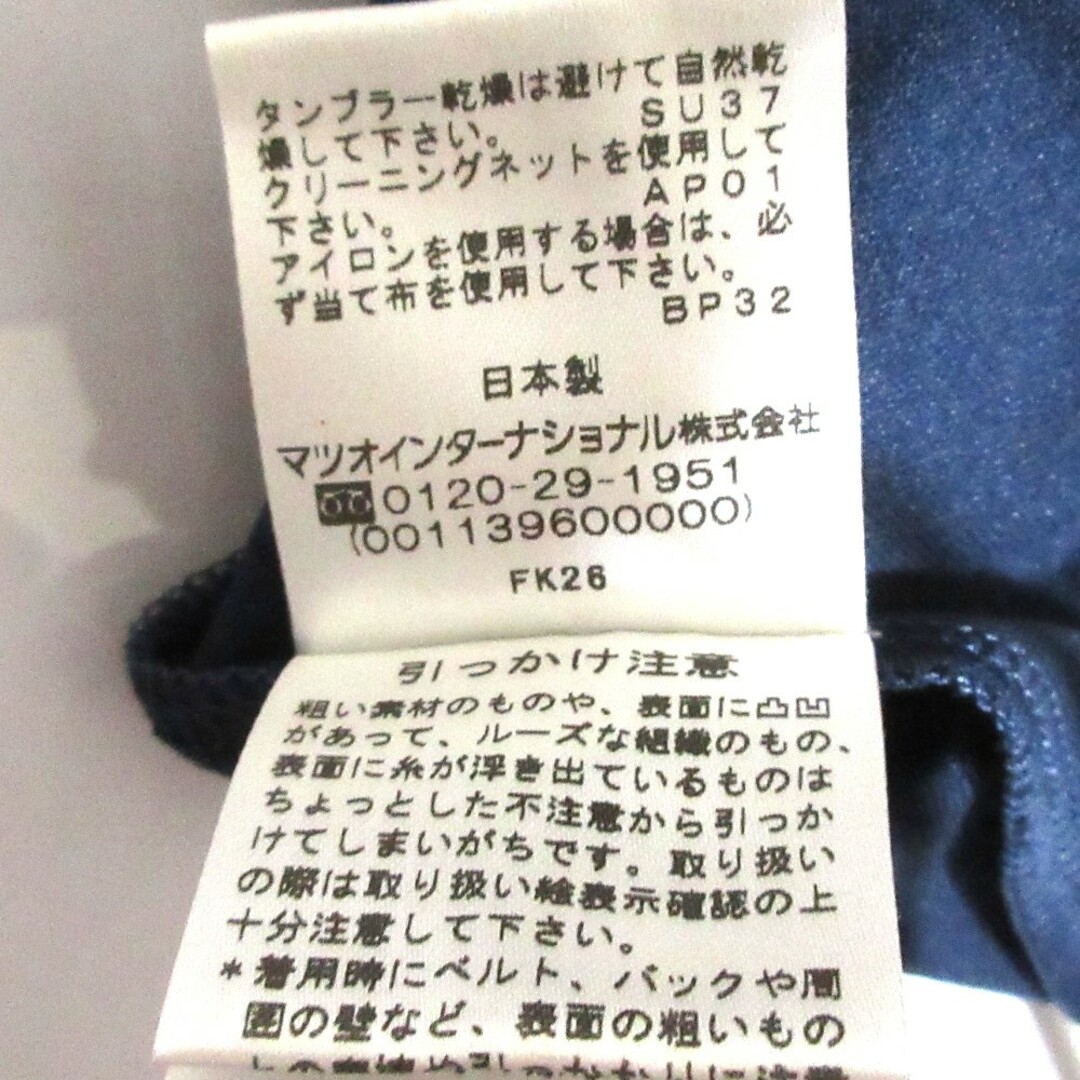 タンブラー乾燥は避けて自然乾
燥して下さい。 SU37
クリーニングネットを使用して
下さい。 AP01
アイロンを使用する場合は、必
ず当て布を使用して下さい。
BP32
日本製
マツオインターナショナル株式会社
0120-29-1951
(001139600000)
FK26
引っかけ注意
粗い素材のものや、表面に凸凹
があって、ルーズな組織のもの、
表面に糸が浮き出ているものは
ちょっとした不注意から引っか
けてしまいがちです。取り扱い
の際は取り扱い絵表示確認の上
十分注意して下さい。
*着用時にベルト、バックや周
囲の壁など、表面の粗いもの